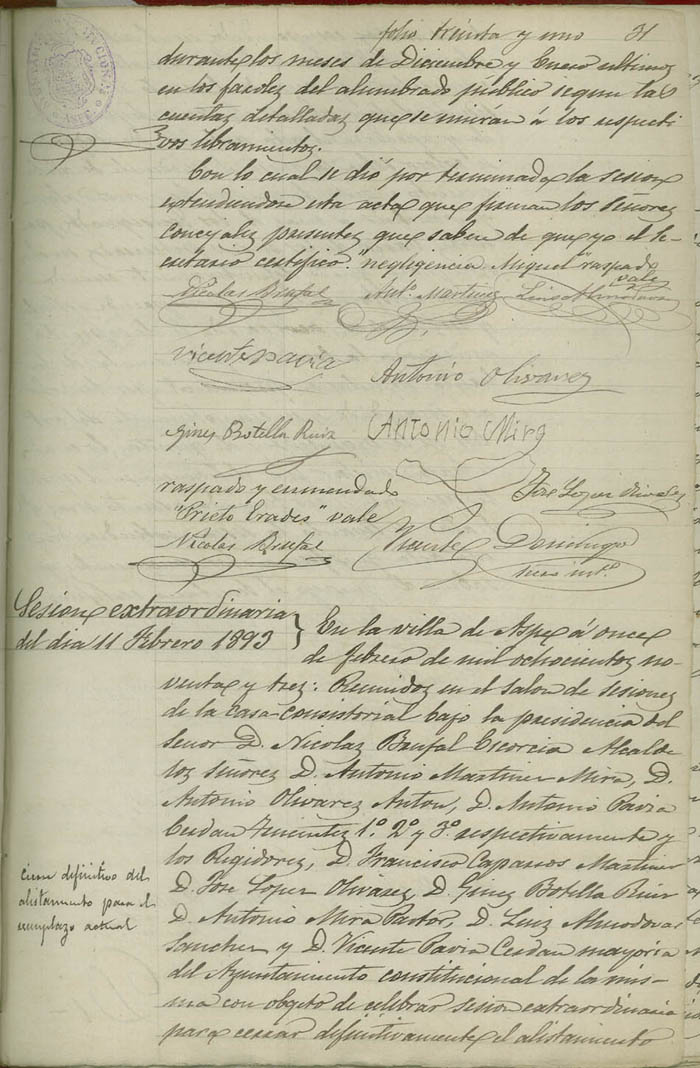 folio treinta y uno 31
durante los meses de Diciembre y Enero ultimos
en los faroles del alumbrado público segun las
cuentas detalladas que se unirán á los respecti-
vos libramientos.
Con lo cual se dió por terminada la sesion
extendiendose esta acta que firman los Señores
Concejales presentes que saben de que yo el Se-
cretario certifico. "negligencia Miguel" raspado
vale
Nicolas Brufal Ant.º Martinez Luis Almodovar
Vicente Pavia
Antonio Olivarez
Gines Botella Ruiz Antonio Mira
raspado y enmendado José Lopez Olivares
"Prieto Erades" vale
Nicolas Brufal Vicente Domingo
Secº intº.
Sesion extraordinaria
del dia 11 Febrero 1893
En la villa de Aspe á once
de febrero de mil ochocientos no-
venta y tres: Reunidos en el Salon de sesiones
de la Casa-Consistorial bajo la presidencia del
Señor D. Nicolas Brufal Escorcia Alcalde
los señores D. Antonio Martinez Mira, D.
Antonio Olivares Anton, D. Antonio Pavia
Cerdan Tenientes 1º. 2º y 3º. respectivamente y
los Regidores, D. Francisco Caparros Martinez
D. Jose Lopez Olivares, D. Gines Botella Ruiz
D. Antonio Mira Pastor, D. Luis Almodovar
Sanchez y D. Vicente Pavia Cerdan mayoria
del Ayuntamiento constitucional de la mis-
ma con objeto de celebrar sesion extraordinaria
para cerrar definitivamente el alistamiento
Cierre definitivo del
alistamiento para el
reemplazo actual